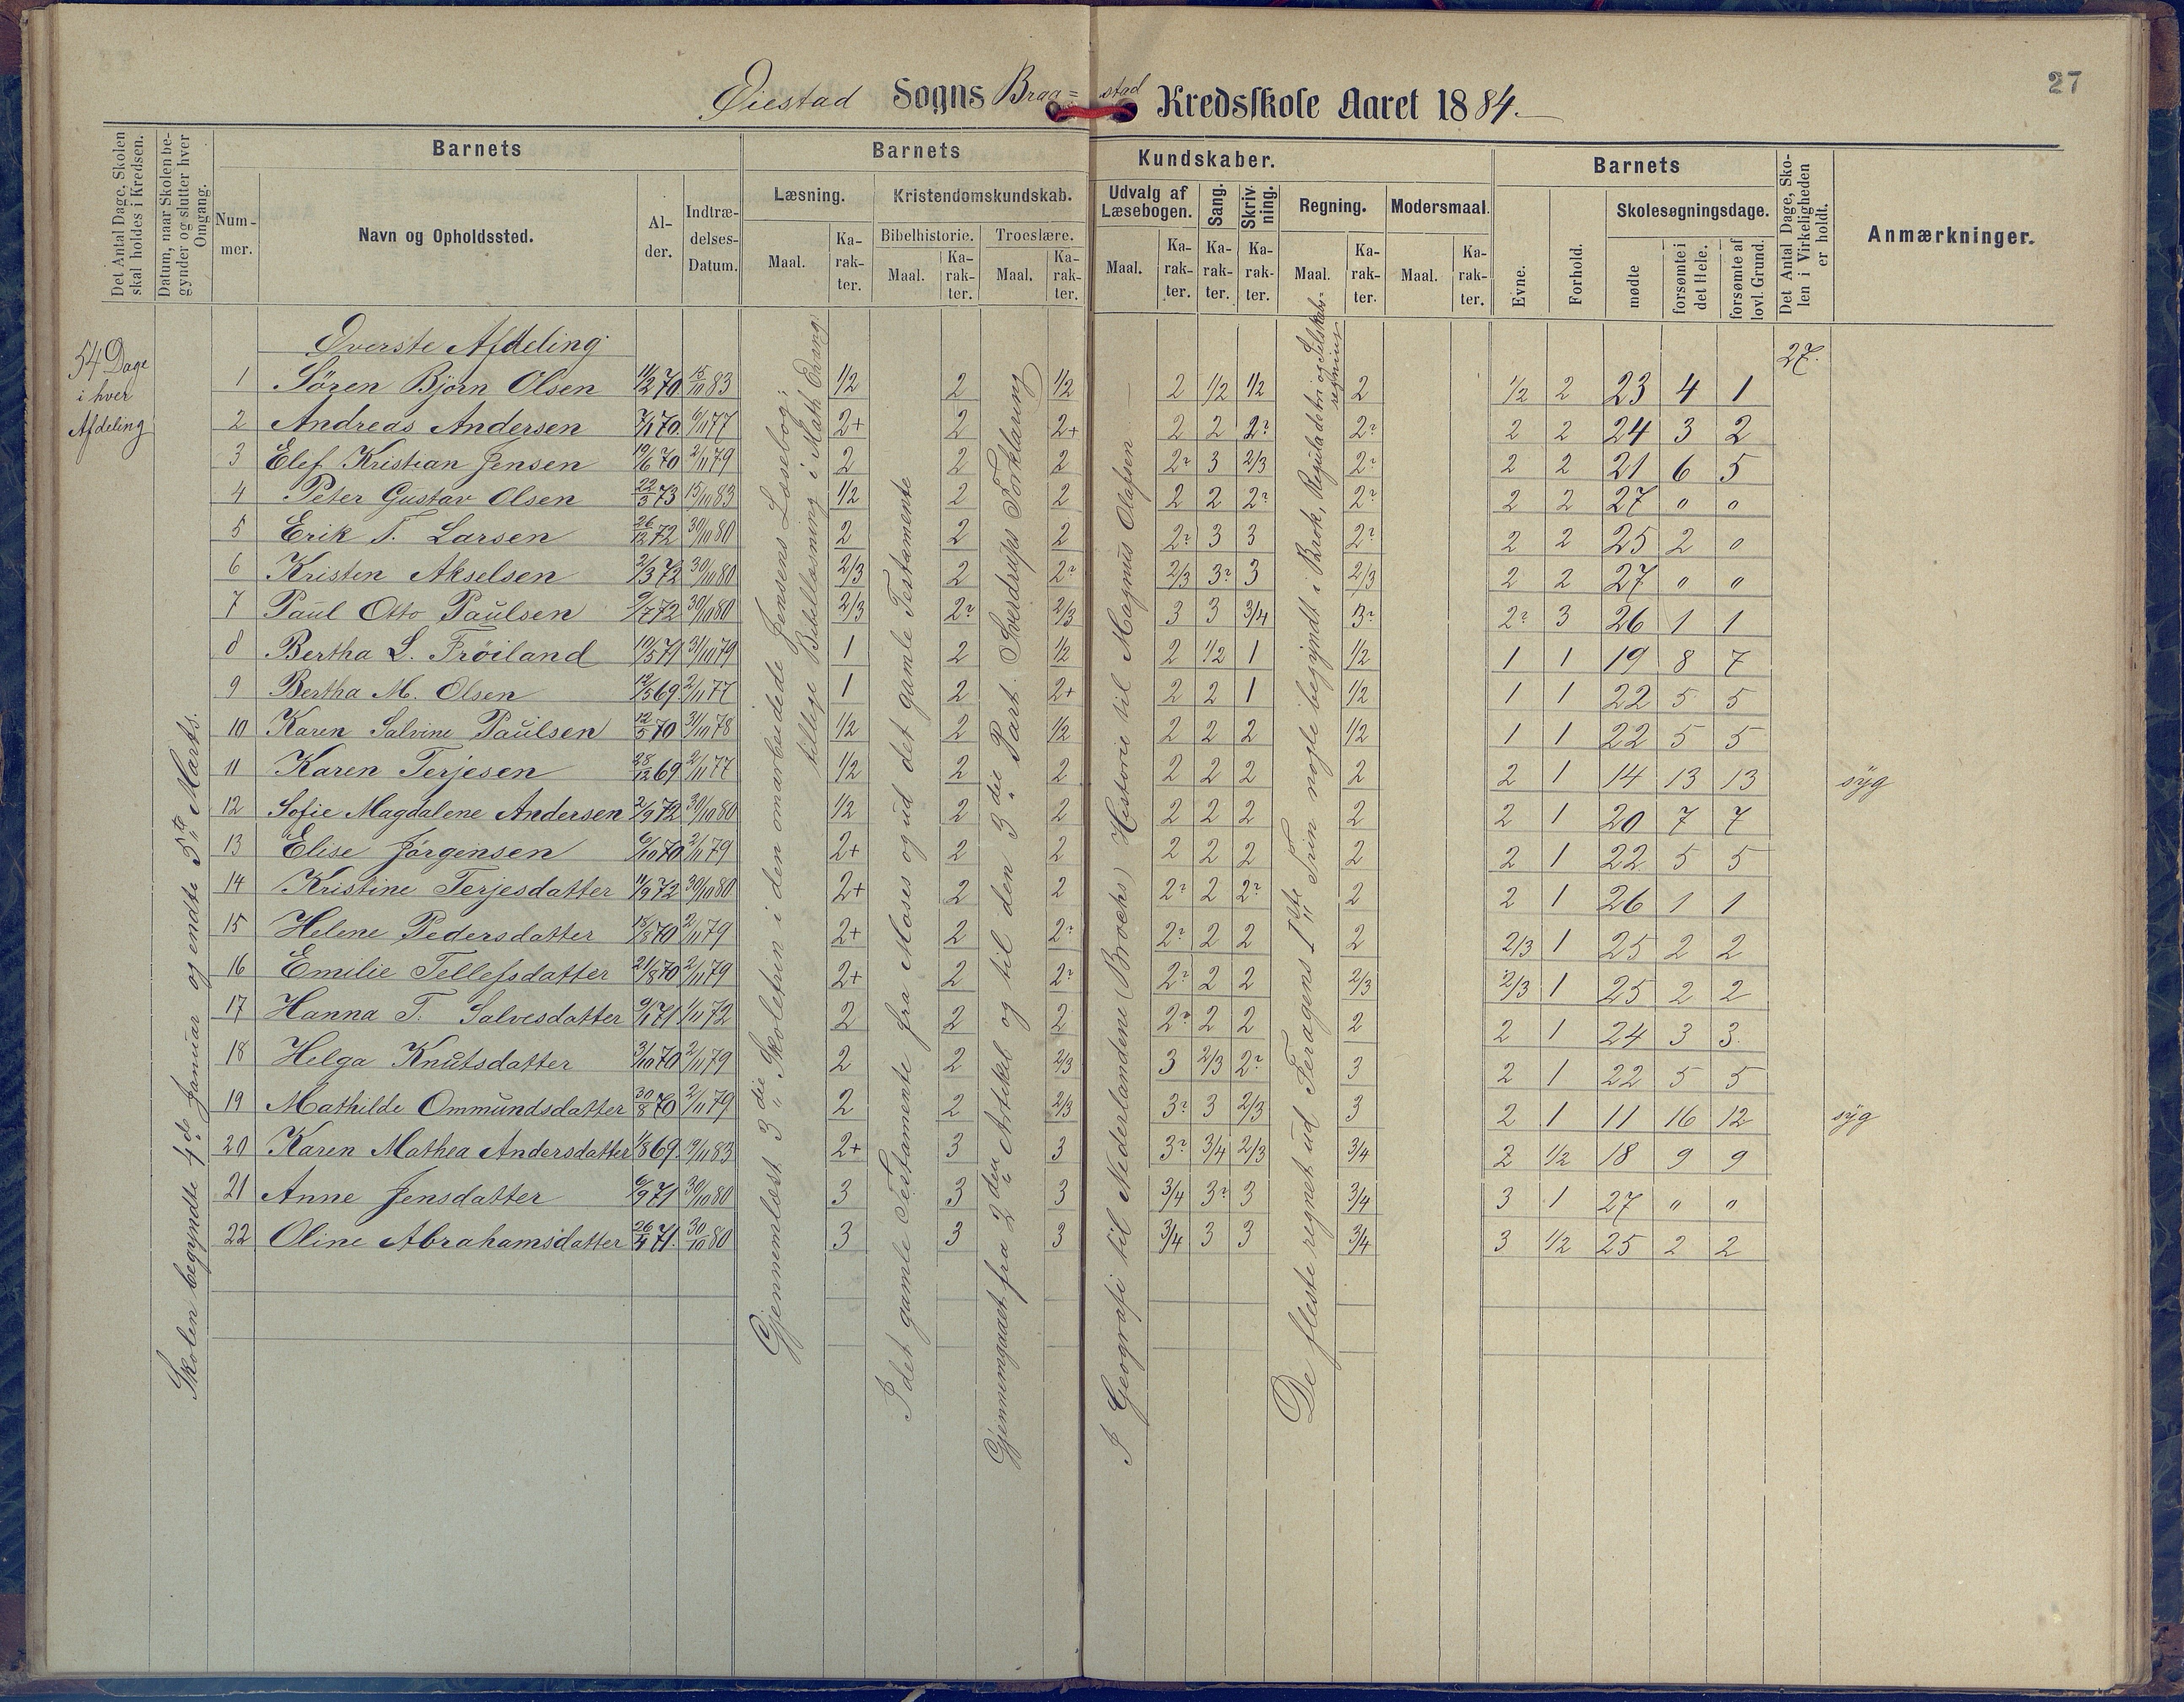 27
Øiestad Sogns Braa=stad Kredsskole Aaret 1884.
Det Antal Dage, Skolen skal holdes i Kredsen.
Datum, naar Skolen begynder og slutter hver Omgang.
Barnets
Nummer.
Navn og Opholdssted.
Alder.
Indtrædelses-Datum.
Barnets Kundskaber.
Læsning.
Maal.
Karakter.
Kristendomskundskab.
Bibelhistorie.
Maal.
Karakter.
Troeslære.
Maal.
Karakter.
Udvalg af Læsebogen.
Maal.
Karakter.
Sang.
Karakter.
Skrivning.
Karakter.
Regning.
Maal.
Karakter.
Modersmaal.
Maal.
Karakter.
Barnets
Evne.
Forhold.
Skolesøgningsdage.
mødte
forsømte i det Hele.
forsømte af lovl. Grund.
Det Antal Dage, Skolen i Virkeligheden er holdt.
Anmærkninger.
54 Dage
i hver
Afdeling
Skolen begyndte 4de Januar og endte 5te Marts.
Øverste Afdeling
27.
Gjennemlæst 3die Skoletrin i den omarbeidede Jensens Læsebog;
tillige Bibellæsning i Math Evang
I det gamle Testamente fra Moses og ud det gamle Testamente
Gjennemgaaet fra 2den Artikel og til den 3die Part. Sverdrups Forklaring
I Geografi til Nederlandene (Brochs) Historie til Magnus Olafsen
De fleste regnet ud Feragens 1ste Trin nogle begyndt i Brøk, Regula detri og Selskabsregning
1 Søren Bjørn Olsen 11/12 70 15/10 83 1/2 2 1/2 2 1/2 1/2 2 1/2 2 23 4 1
2 Andreas Andersen 7/1 70 6/11 77 2+ 2 2+ 2 2 2? 2? 2 2 24 3 2
3 Elef Kristian Jensen 19/6 70 2/11 79 2 2 2 2? 3 2/3 2? 2 2 21 6 5
4 Peter Gustav Olsen 22/3 73 15/10 83 1/2 2 2 2 2 2? 2? 2 2 27 " "
5 Erik T. Larsen 26/12 72 30/10 80 2 2 2 2? 3 3 2? 2 2 25 2 "
6 Kristen Akselsen 2/3 72 30/10 80 2/3 2 2? 2/3 3? 3 2/3 2 2 27 " "
7 Paul Otto Paulsen 9/7 72 30/10 80 2/3 2? 2/3 3 3 3/4 3? 2? 3 26 1 1
8 Bertha L. Frøiland 19/5 71 31/10 79 1 2 1/2 2 1/2 1 1/2 1 1 19 8 7
9 Bertha M. Olsen 12/5 69 2/11 77 1 2 2+ 2 2 1 1/2 1 1 22 5 5
10 Karen Salvine Paulsen 12/5 70 31/10 78 1/2 2 1/2 2 2 2 1/2 1 1 22 5 5
11 Karen Terjesen 28/12 69 2/11 77 1/2 2 2 2 2 2 2 2 1 14 13 13 syg
12 Sofie Magdalene Andersen 2/9 72 30/10 80 1/2 2 2 2 2 2 2 2 1 20 7 7
13 Elise Jørgensen 6/10 70 2/11 79 2+ 2 2 2 2 2 2 2 1 22 5 5
14 Kristine Terjesdatter 11/9 72 30/10 80 2+ 2 2 2? 2 2? 2 2 1 26 1 1
15 Helene Pedersdatter 18/8 70 2/11 79 2+ 2 2? 2? 2 2 2 2/3 1 25 2 2
16 Emilie Tellefsdatter 21/8 70 2/11 79 2+ 2 2? 2? 2 2 2/3 2/3 1 25 2 2
17 Hanna T. Salvesdatter 9/1 71 1/11 72 2 2 2 2? 2 2 2 2 1 24 3 3
18 Helga Knutsdatter 3/10 70 2/11 79 2 2 2/3 3 2/3 2? 3 2 1 22 5 5
19 Mathilde Ommundsdatter 30/8 70 2/11 79 2 2 2/3 3? 3 2/3 3 2 1 11 16 12 syg
20 Karen Mathea Andersdatter 1/8 69 19/11 83 2+ 3 3 3? 3/4 2/3 3/4 2 1/2 18 9 9
21 Anne Jensdatter 6/9 71 30/10 80 3 3 3 3/4 3? 3 3/4 3 1 27 " "
22 Oline Abrahamsdatter 26/4 71. 30/10 80 3 3 3 3/4 3 3 3/4 3 1/2 25 2 2